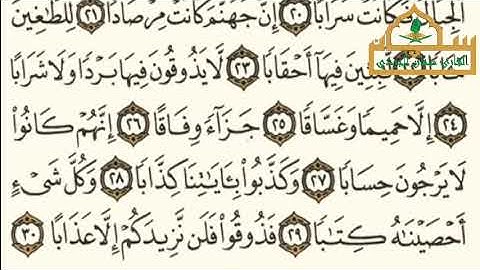 الجِبَالُ فَكَانَتْ سَرَابًا ٢٠ إِنَّ جَهَنَّمَ كَانَتْ مِرْصَادًا ٢١ لِّلطَّٰغِينَ
لَّٰبِثِينَ فِيهَآ أَحْقَابًا ٢٣ لَّا يَذُوقُونَ فِيهَا بَرْدًا وَلَا شَرَابًا
٢٤ إِلَّا حَمِيمًا وَغَسَّاقًا ٢٥ جَزَآءً وِفَاقًا ٢٦ إِنَّهُمْ كَانُوا۟
لَا يَرْجُونَ حِسَابًا ٢٧ وَكَذَّبُوا۟ بِـَٔايَٰتِنَا كِذَّابًا ٢٨ وَكُلَّ شَىْءٍ
أَحْصَيْنَٰهُ كِتَٰبًا ٢٩ فَذُوقُوا۟ فَلَن نَّزِيدَكُمْ إِلَّا عَذَابًا ٣٠